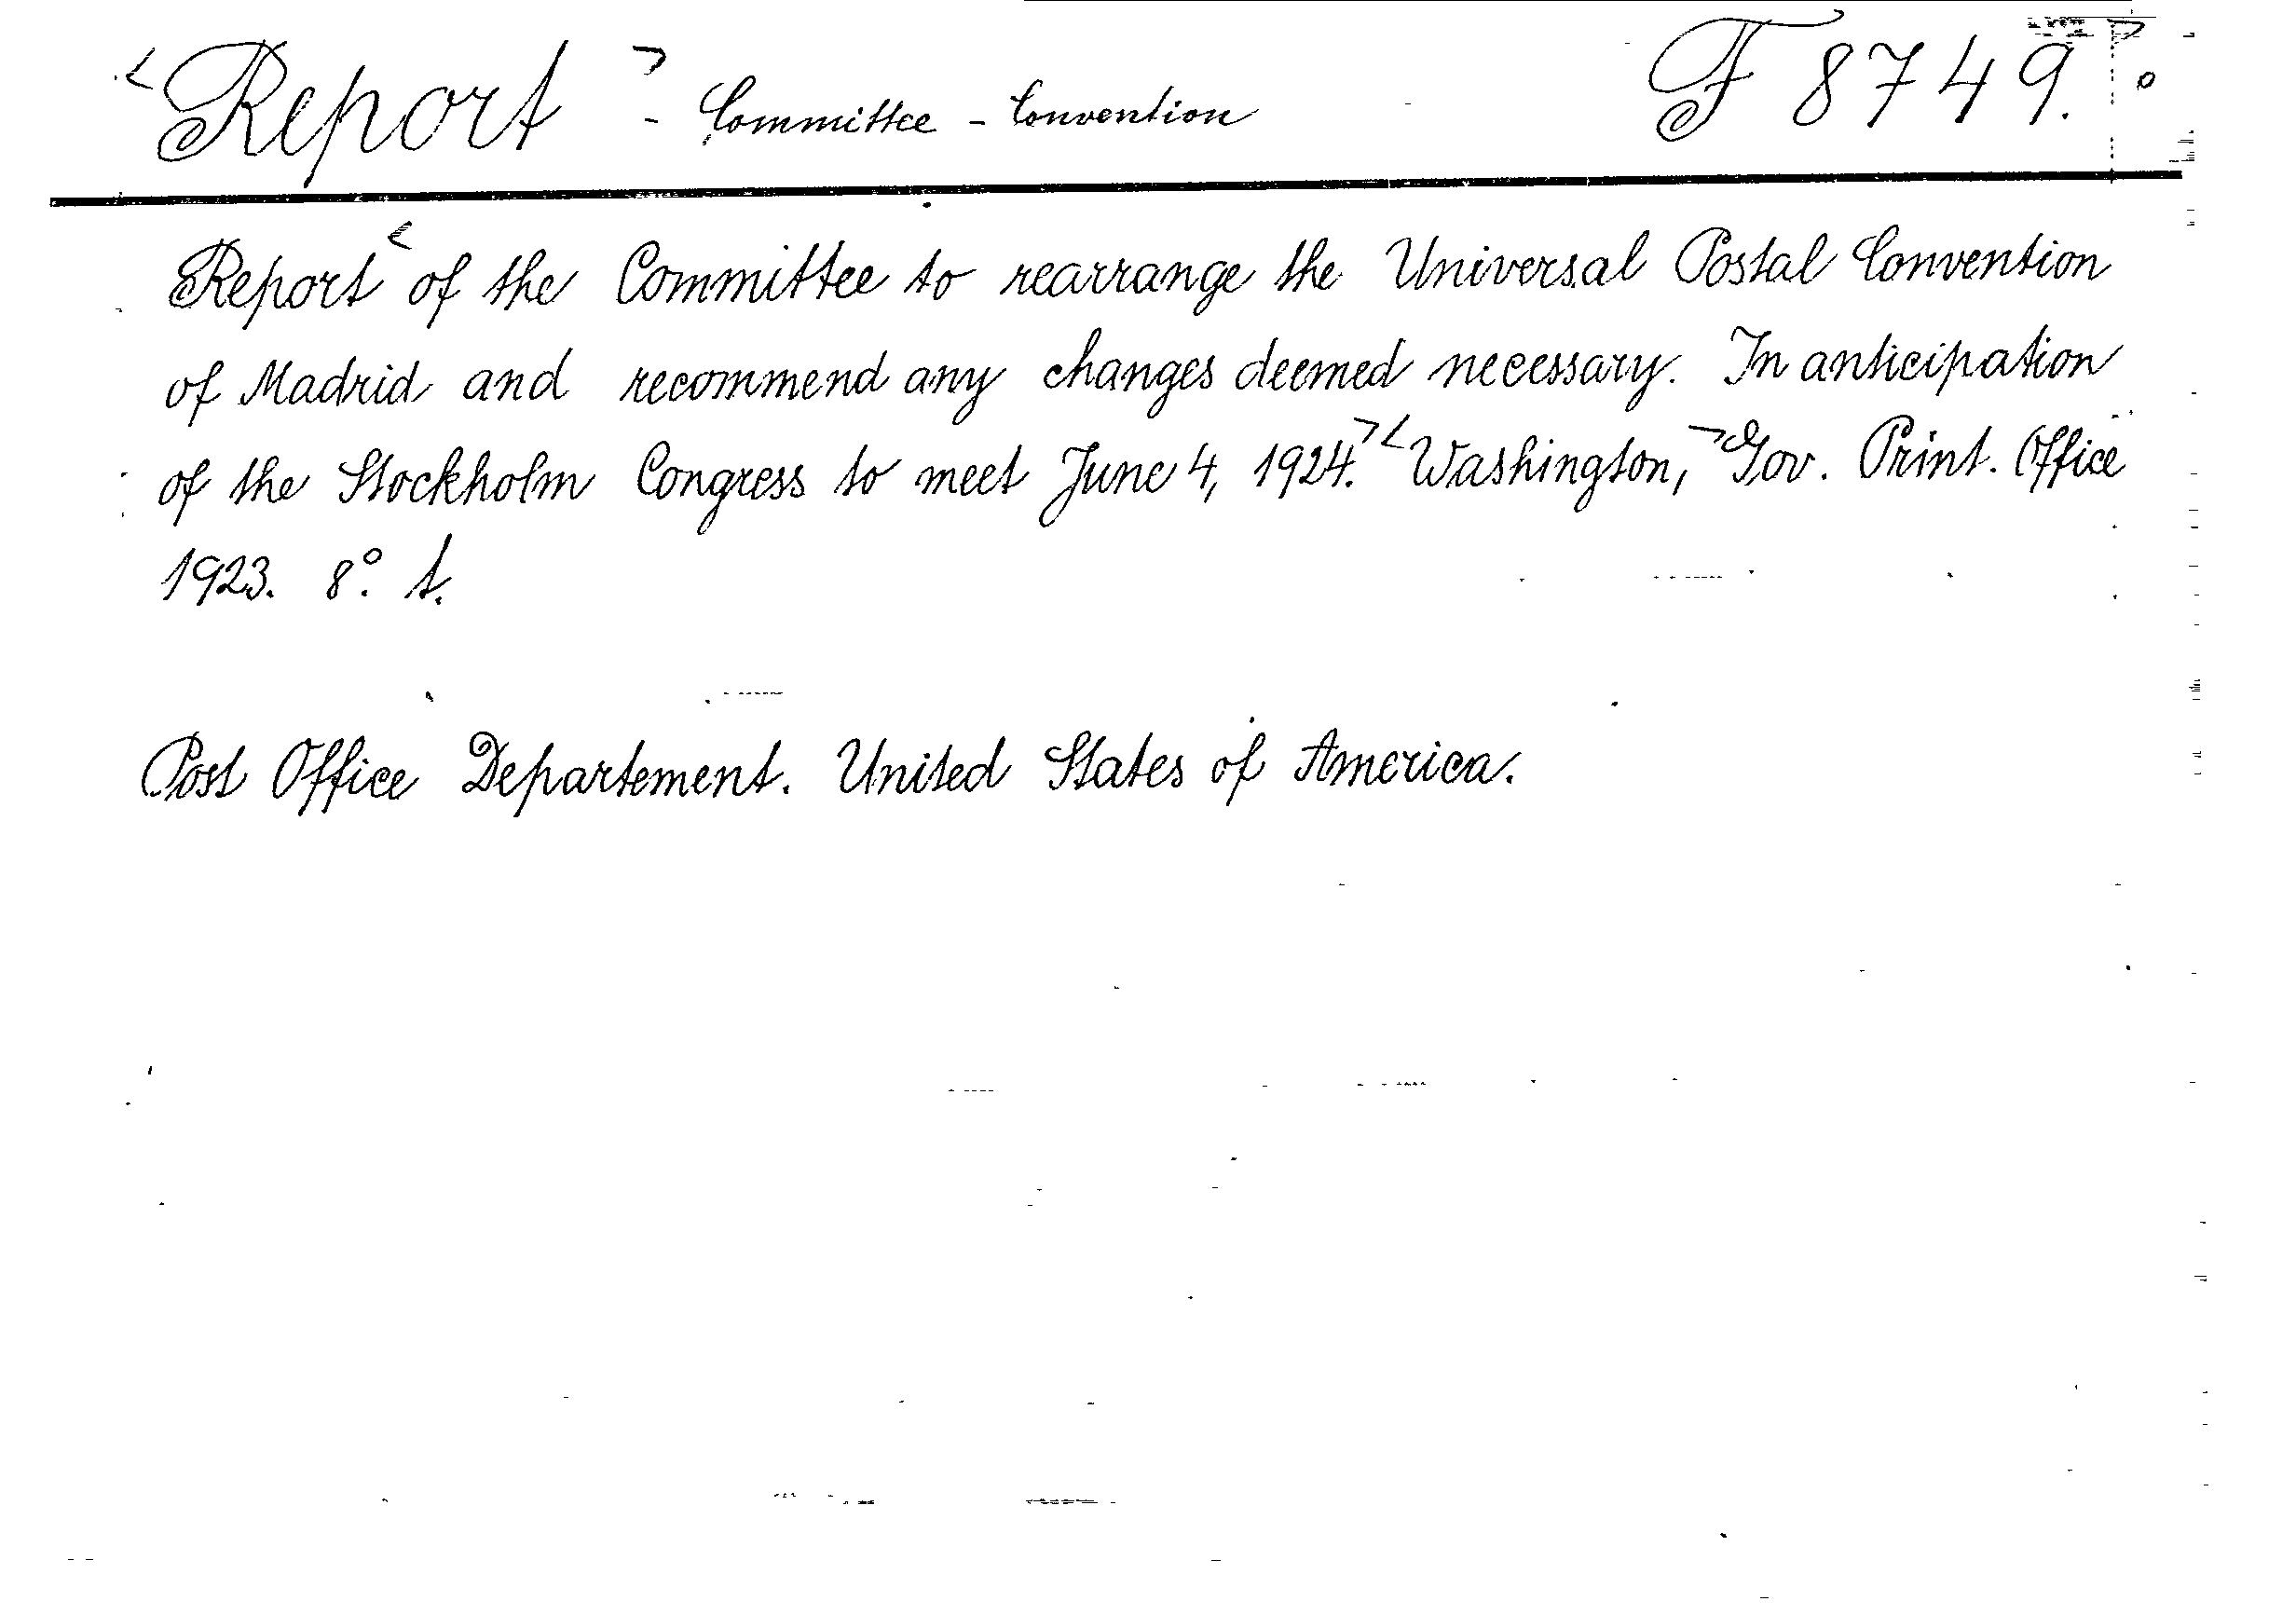 <Report> - Committee - Convention F 8749.
Report < of the Committee to rearrange the Universal Postal Convention
of Madrid and recommend any changes deemed necessary. In anticipation
of the Stockholm Congress to meet June 4, 1924. > < Washington, > Gov. Print. Office
1923. 8°. t.
Post Office Departement. United States of America.